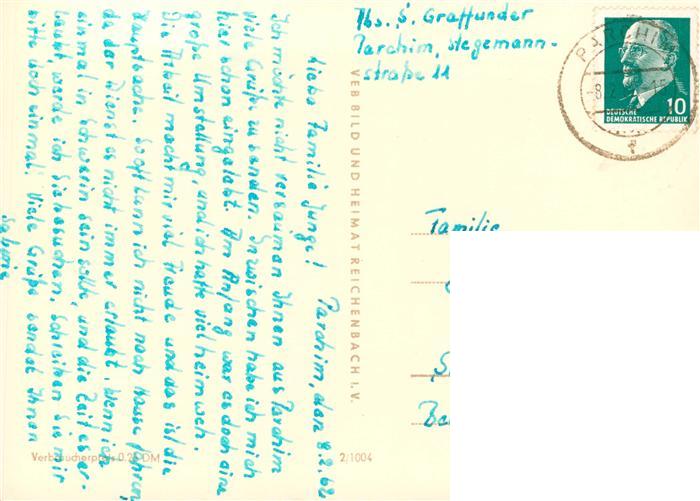 Abs. S. Graffunder
Parchim, Stegemann-
straße 11
DEUTSCHE
DEMOKRATISCHE REPUBLIK
10
Familie
VEB BILD UND HEIMAT REICHENBACH I. V.
Parchim, den 8.2.62
Liebe Familie Junge!
Ich möchte nicht versäumen Ihnen aus Parchim
viele Grüße zu senden. Inzwischen habe ich mich
hier schon eingelebt. Am Anfang war es doch eine
große Umstellung, und ich hatte viel heimweh.
Die Arbeit macht mir viel Freude und das ist die
Hauptsache. So oft kann ich nicht nach Hause fahren,
da der Dienst es nicht immer erlaubt. Wenn ich
einmal in Schwerin sein sollte, und die Zeit es er-
laubt, werde ich Sie besuchen. Schreiben Sie mir
bitte doch einmal! Viele Grüße sendet Ihnen
Verbraucherpreis 0.20 DM
2/1004